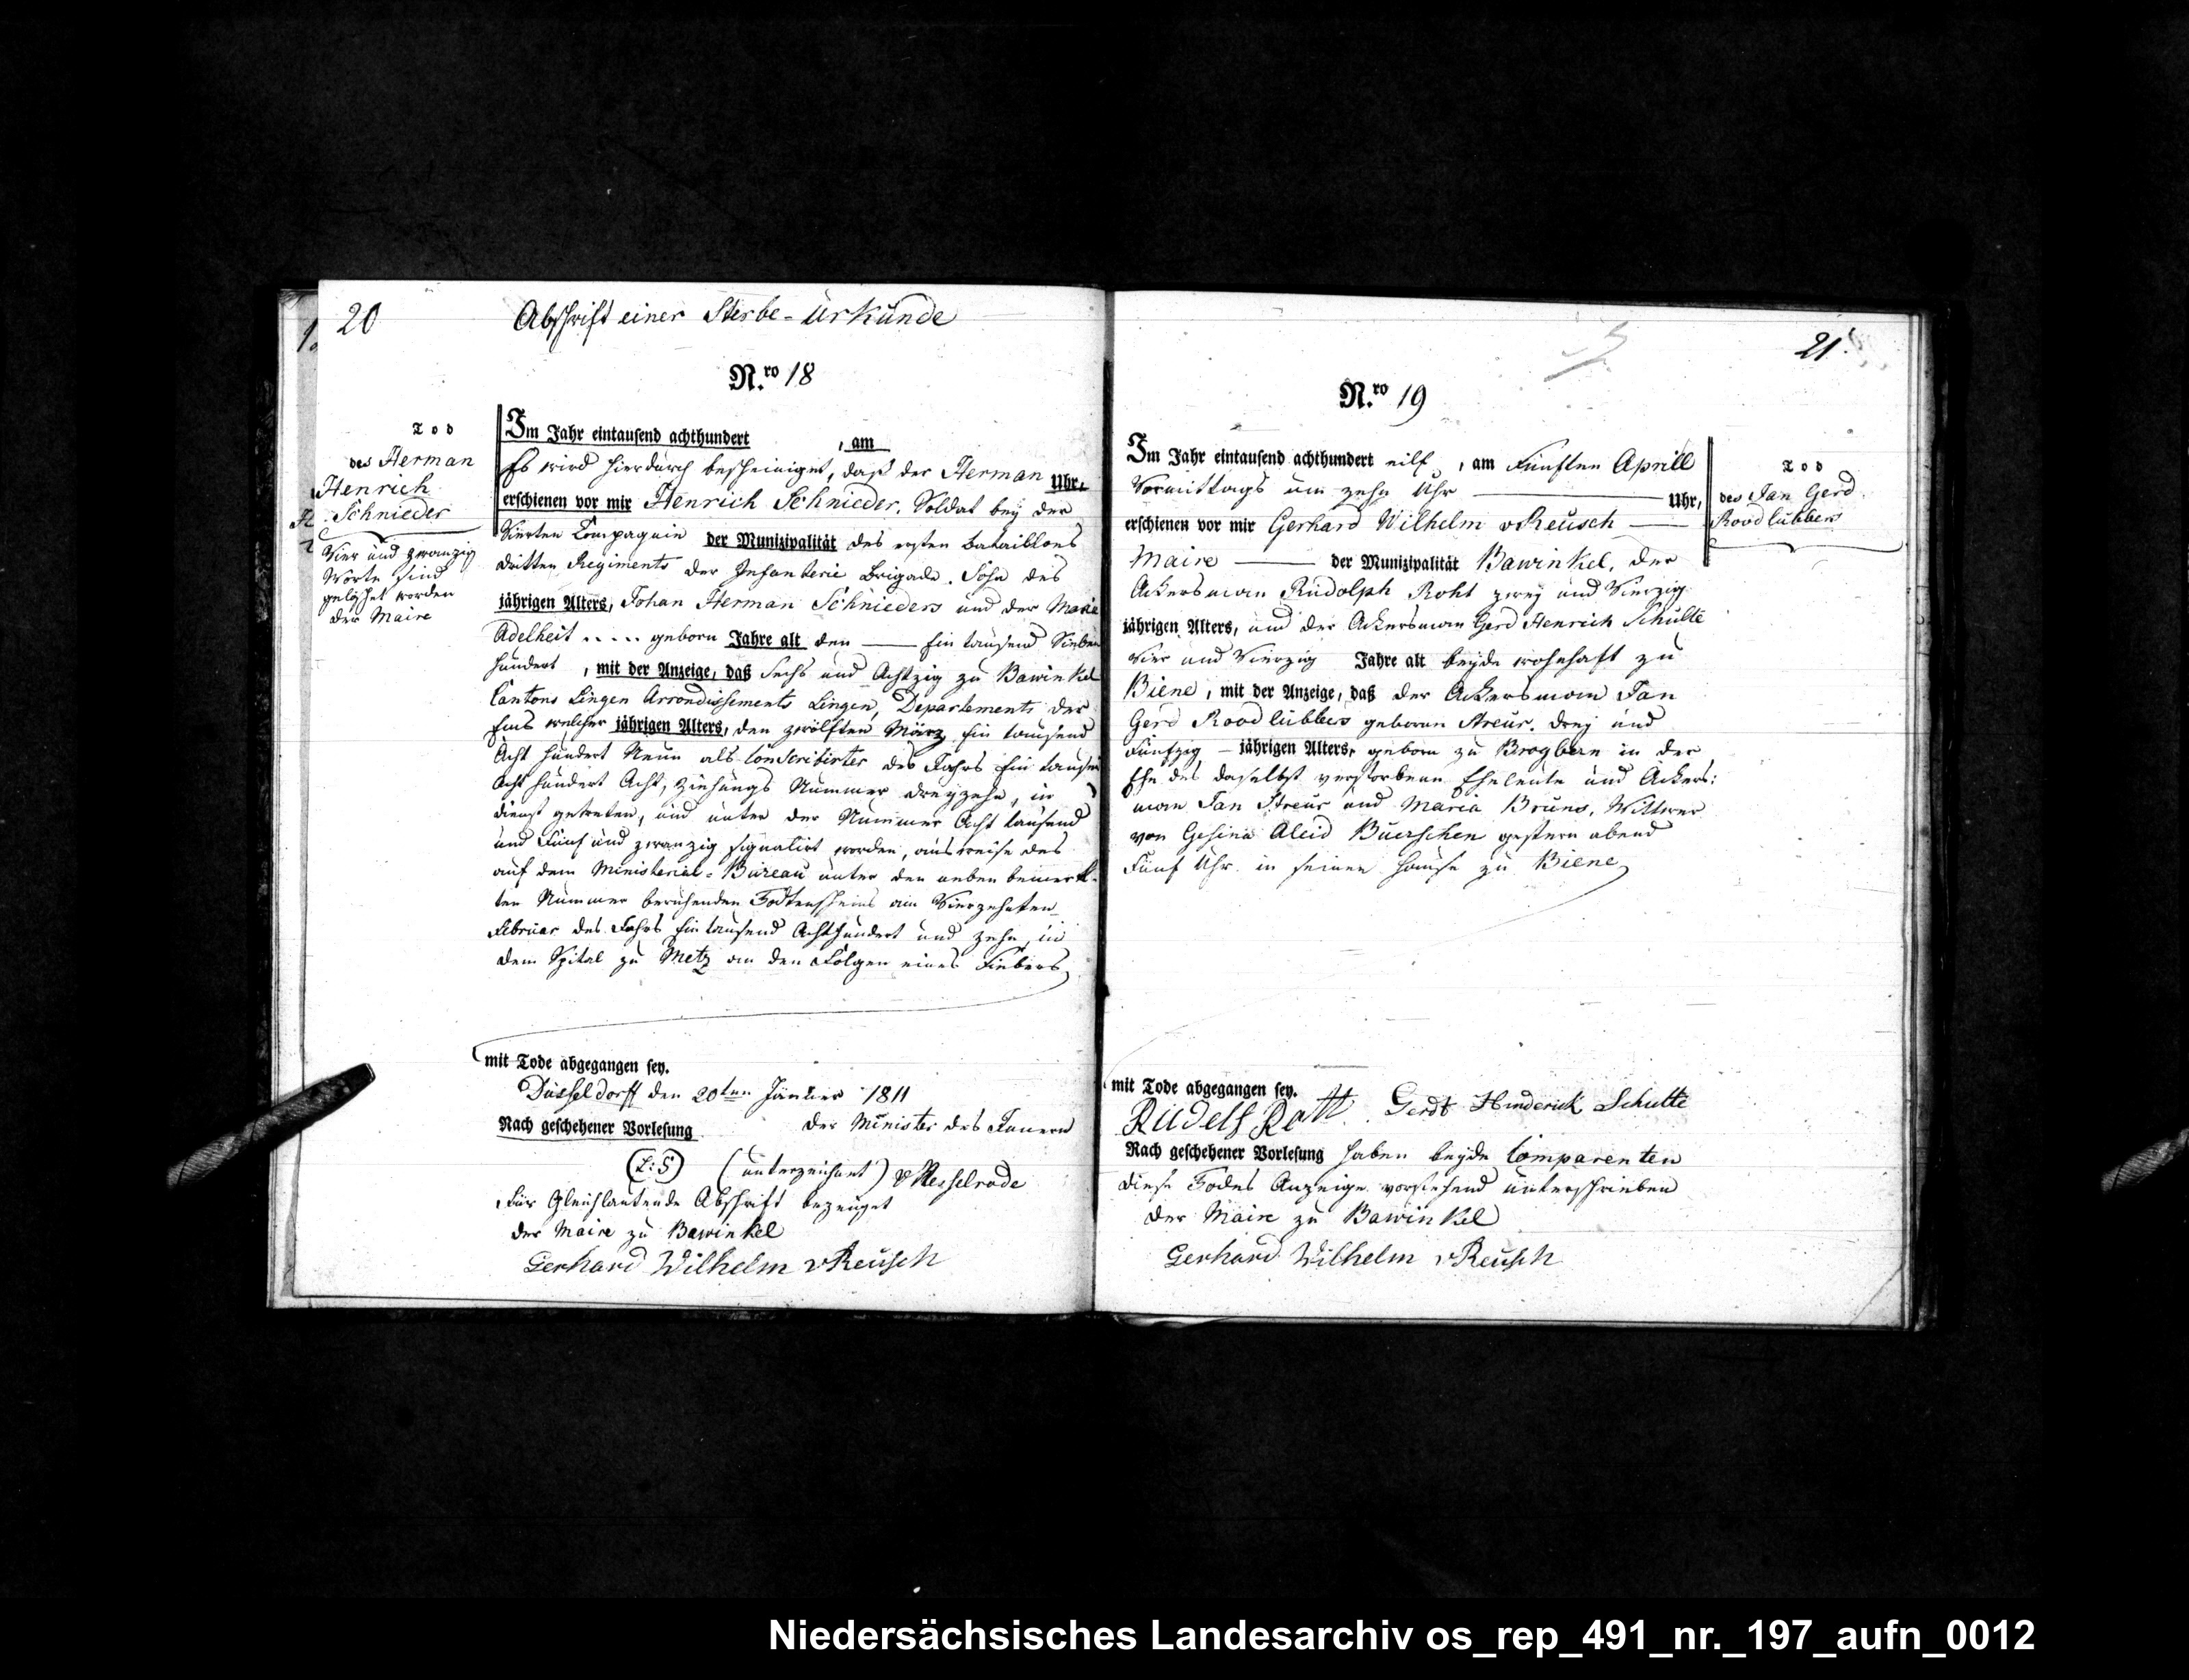 20
Abschrift einer Sterbe-Urkunde
N.ro 18
Tod
des Herman
Henrich
Schnieder
Vier und zwanzig
Worte sind
gelöschet worden
der Maire
Im Jahr eintausend achthundert , am
Es wird hierdurch bescheiniget, daß der Herman Uhr,
erschienen vor mir Henrich Schnieder, Soldat bey der
Vierten Compagnie der Munizipalität des ersten Bataillons
dritten Regiments der Infanterie Brigade. Sohn des
jährigen Alters, Johan Herman Schnieders und der Marie
Adelheit .... geborn Jahre alt den — Ein tausend Sieben
hundert , mit der Anzeige, daß Sechs und Achtzig zu Bawinkel
Cantons Lingen Arrondissements Lingen, Departements der
Ems welcher jährigen Alters, den zwölften März Ein tausend
Acht hundert Neun als Conscribirter des Jahrs Ein tausend
Acht hundert Acht, Ziehungs Nummer dreyzehn, in
dienst getreten, und unter der Nummer Acht tausend
und Fünf und zwanzig signalirt worden, ausweise des
auf dem Ministerial-Büreau unter den neben bemerk-
ten Nummer beruhenden Todtenscheins am Vierzehnten
Februar des Jahrs Ein tausend Achthundert und zehn, in
dem Spital zu Metz an den Folgen eines Fiebers
mit Tode abgegangen sey.
Düsseldorff den 20ten Jänner 1811
Nach geschehener Vorlesung der Minister des Innern
(L:S) (unterzeichnet) v Nesselrode
Für Gleichlautende Abschrift bezeuget
der Maire zu Bawinkel
Gerhard Wilhelm v Reusch
21
N.ro 19
Tod
des Jan Gerd
Roodlübbers
Im Jahr eintausend achthundert eilf , am Fünften Aprill
Vormittags um zehn Uhr — Uhr,
erschienen vor mir Gerhard Wilhelm v Reusch —
Maire — der Munizipalität Bawinkel, der
Ackersman Rudolph Roht zwey und Vierzig
jährigen Alters, und der Ackersman Gerd Henrich Schulte
Vier und Vierzig Jahre alt beyde wohnhaft zu
Biene , mit der Anzeige, daß der Ackersman Jan
Gerd Roodlübbers geboren Streur. drey und
Fünfzig — jährigen Alters, geborn zu Brogbern in der
Ehe des daselbst verstorbenen Eheleute und Ackers:
man Jan Streur und Maria Bruns, Wittwer
von Gesina Aleid Büerschen gestern abend
Fünf Uhr in seinen Hause zu Biene
mit Tode abgegangen sey.
Rudelf Rott Gerdt Hinderick Schulte
Nach geschehener Vorlesung haben beyde Comparenten
diese Todes Anzeige vorstehend unterschrieben
der Maire zu Bawinkel
Gerhard Wilhelm v Reusch
Niedersächsisches Landesarchiv os_rep_491_nr._197_aufn_0012